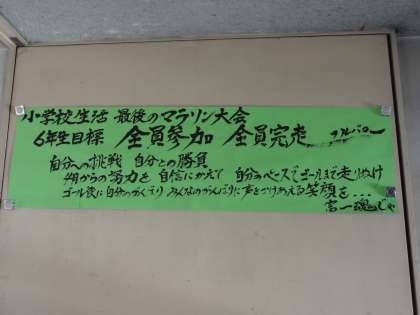 小学校生活 最後のマラソン大会
6年生目標 全員参加 全員完走 フルパワー
自分への挑戦 自分との勝負
4月からの努力を 自信にかえて 自分のペースでゴールまで走りぬけ
ゴール後に自分のがんばり みんなのがんばりに声をかけあえる笑顔を...
宮一魂じゃ